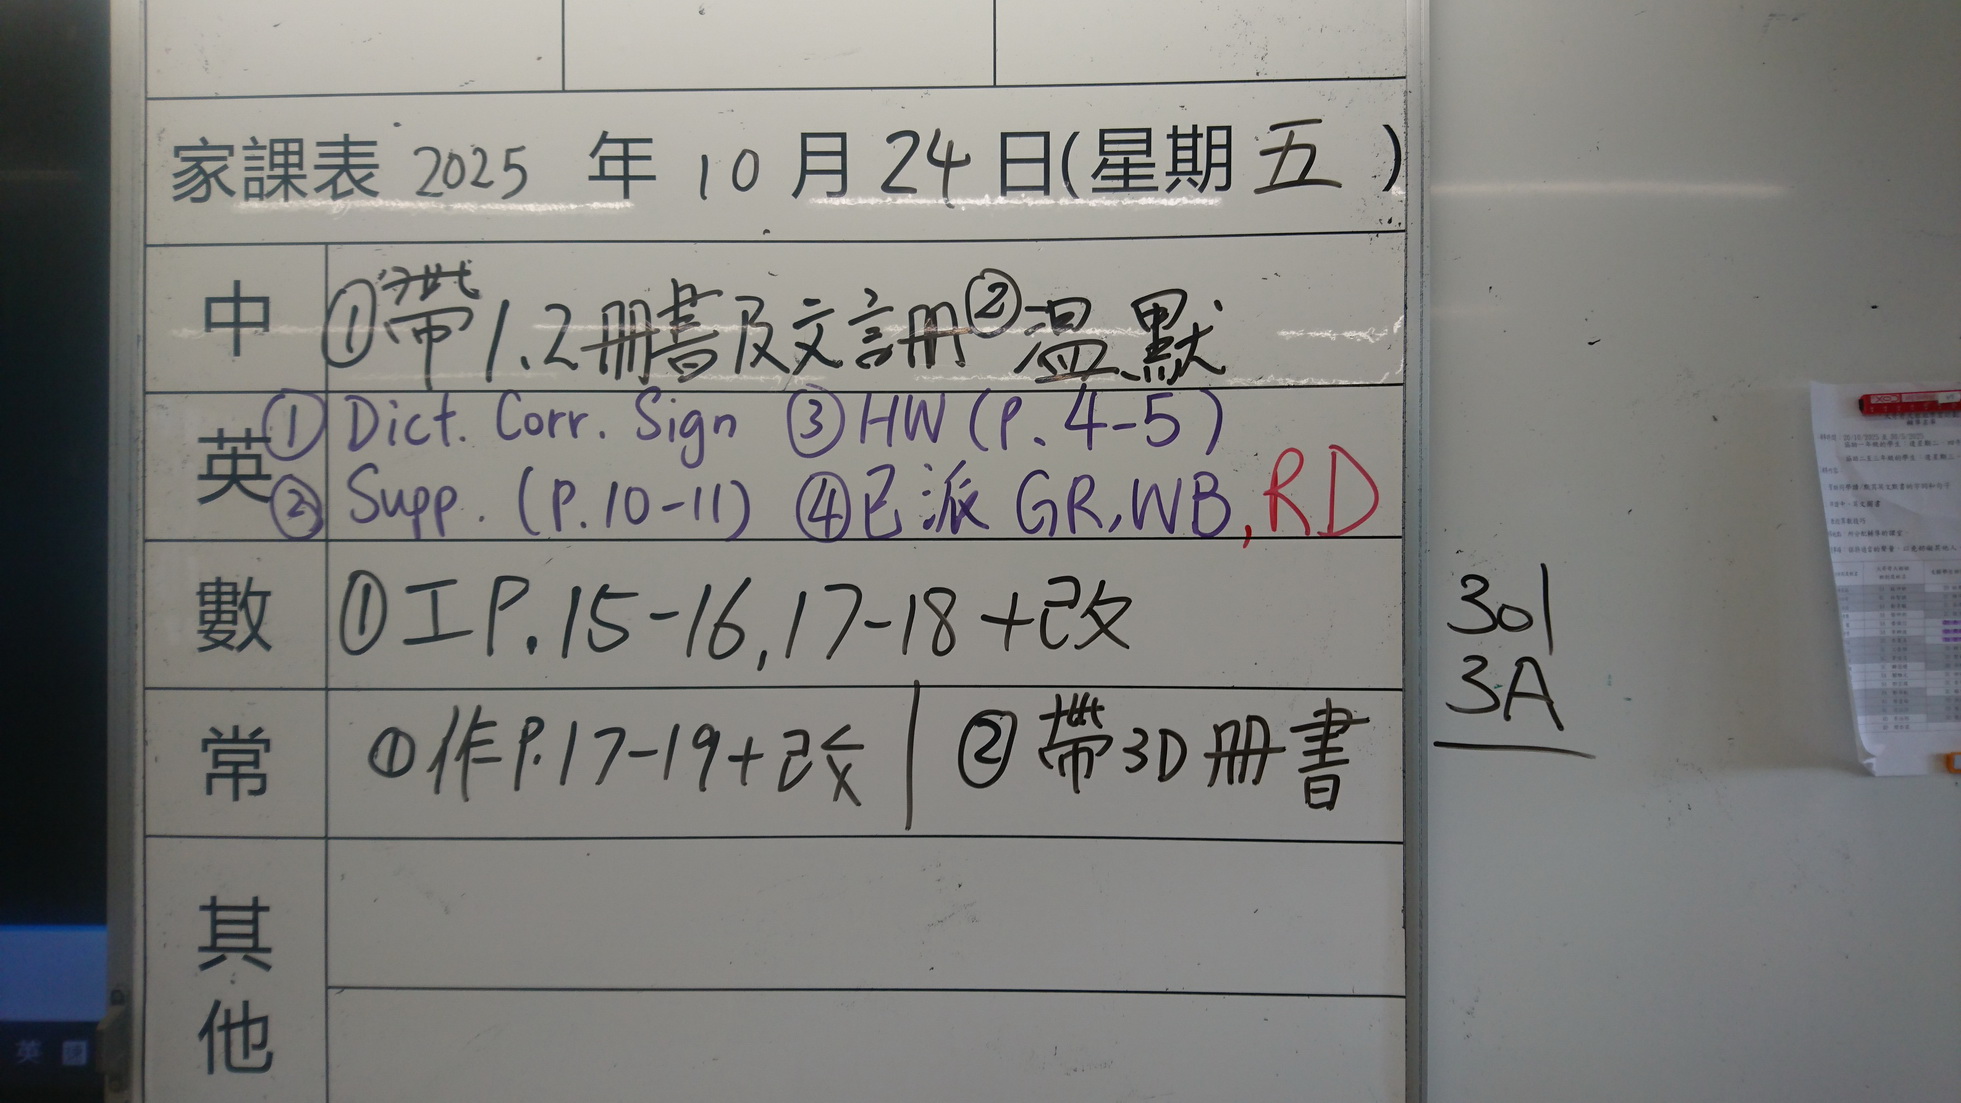 家課表 2025 年 10 月 24 日(星期 五 )
中 ①帶1.2冊書及文言冊②溫默
英 ① Dict. Corr. Sign ③ HW (P. 4-5)
② Supp. (P.10-11) ④已派 GR, WB, RD
數 ①工P.15-16,17-18+改
常 ①作P.17-19+改 | ②帶3D冊書
其他
301
3A
英